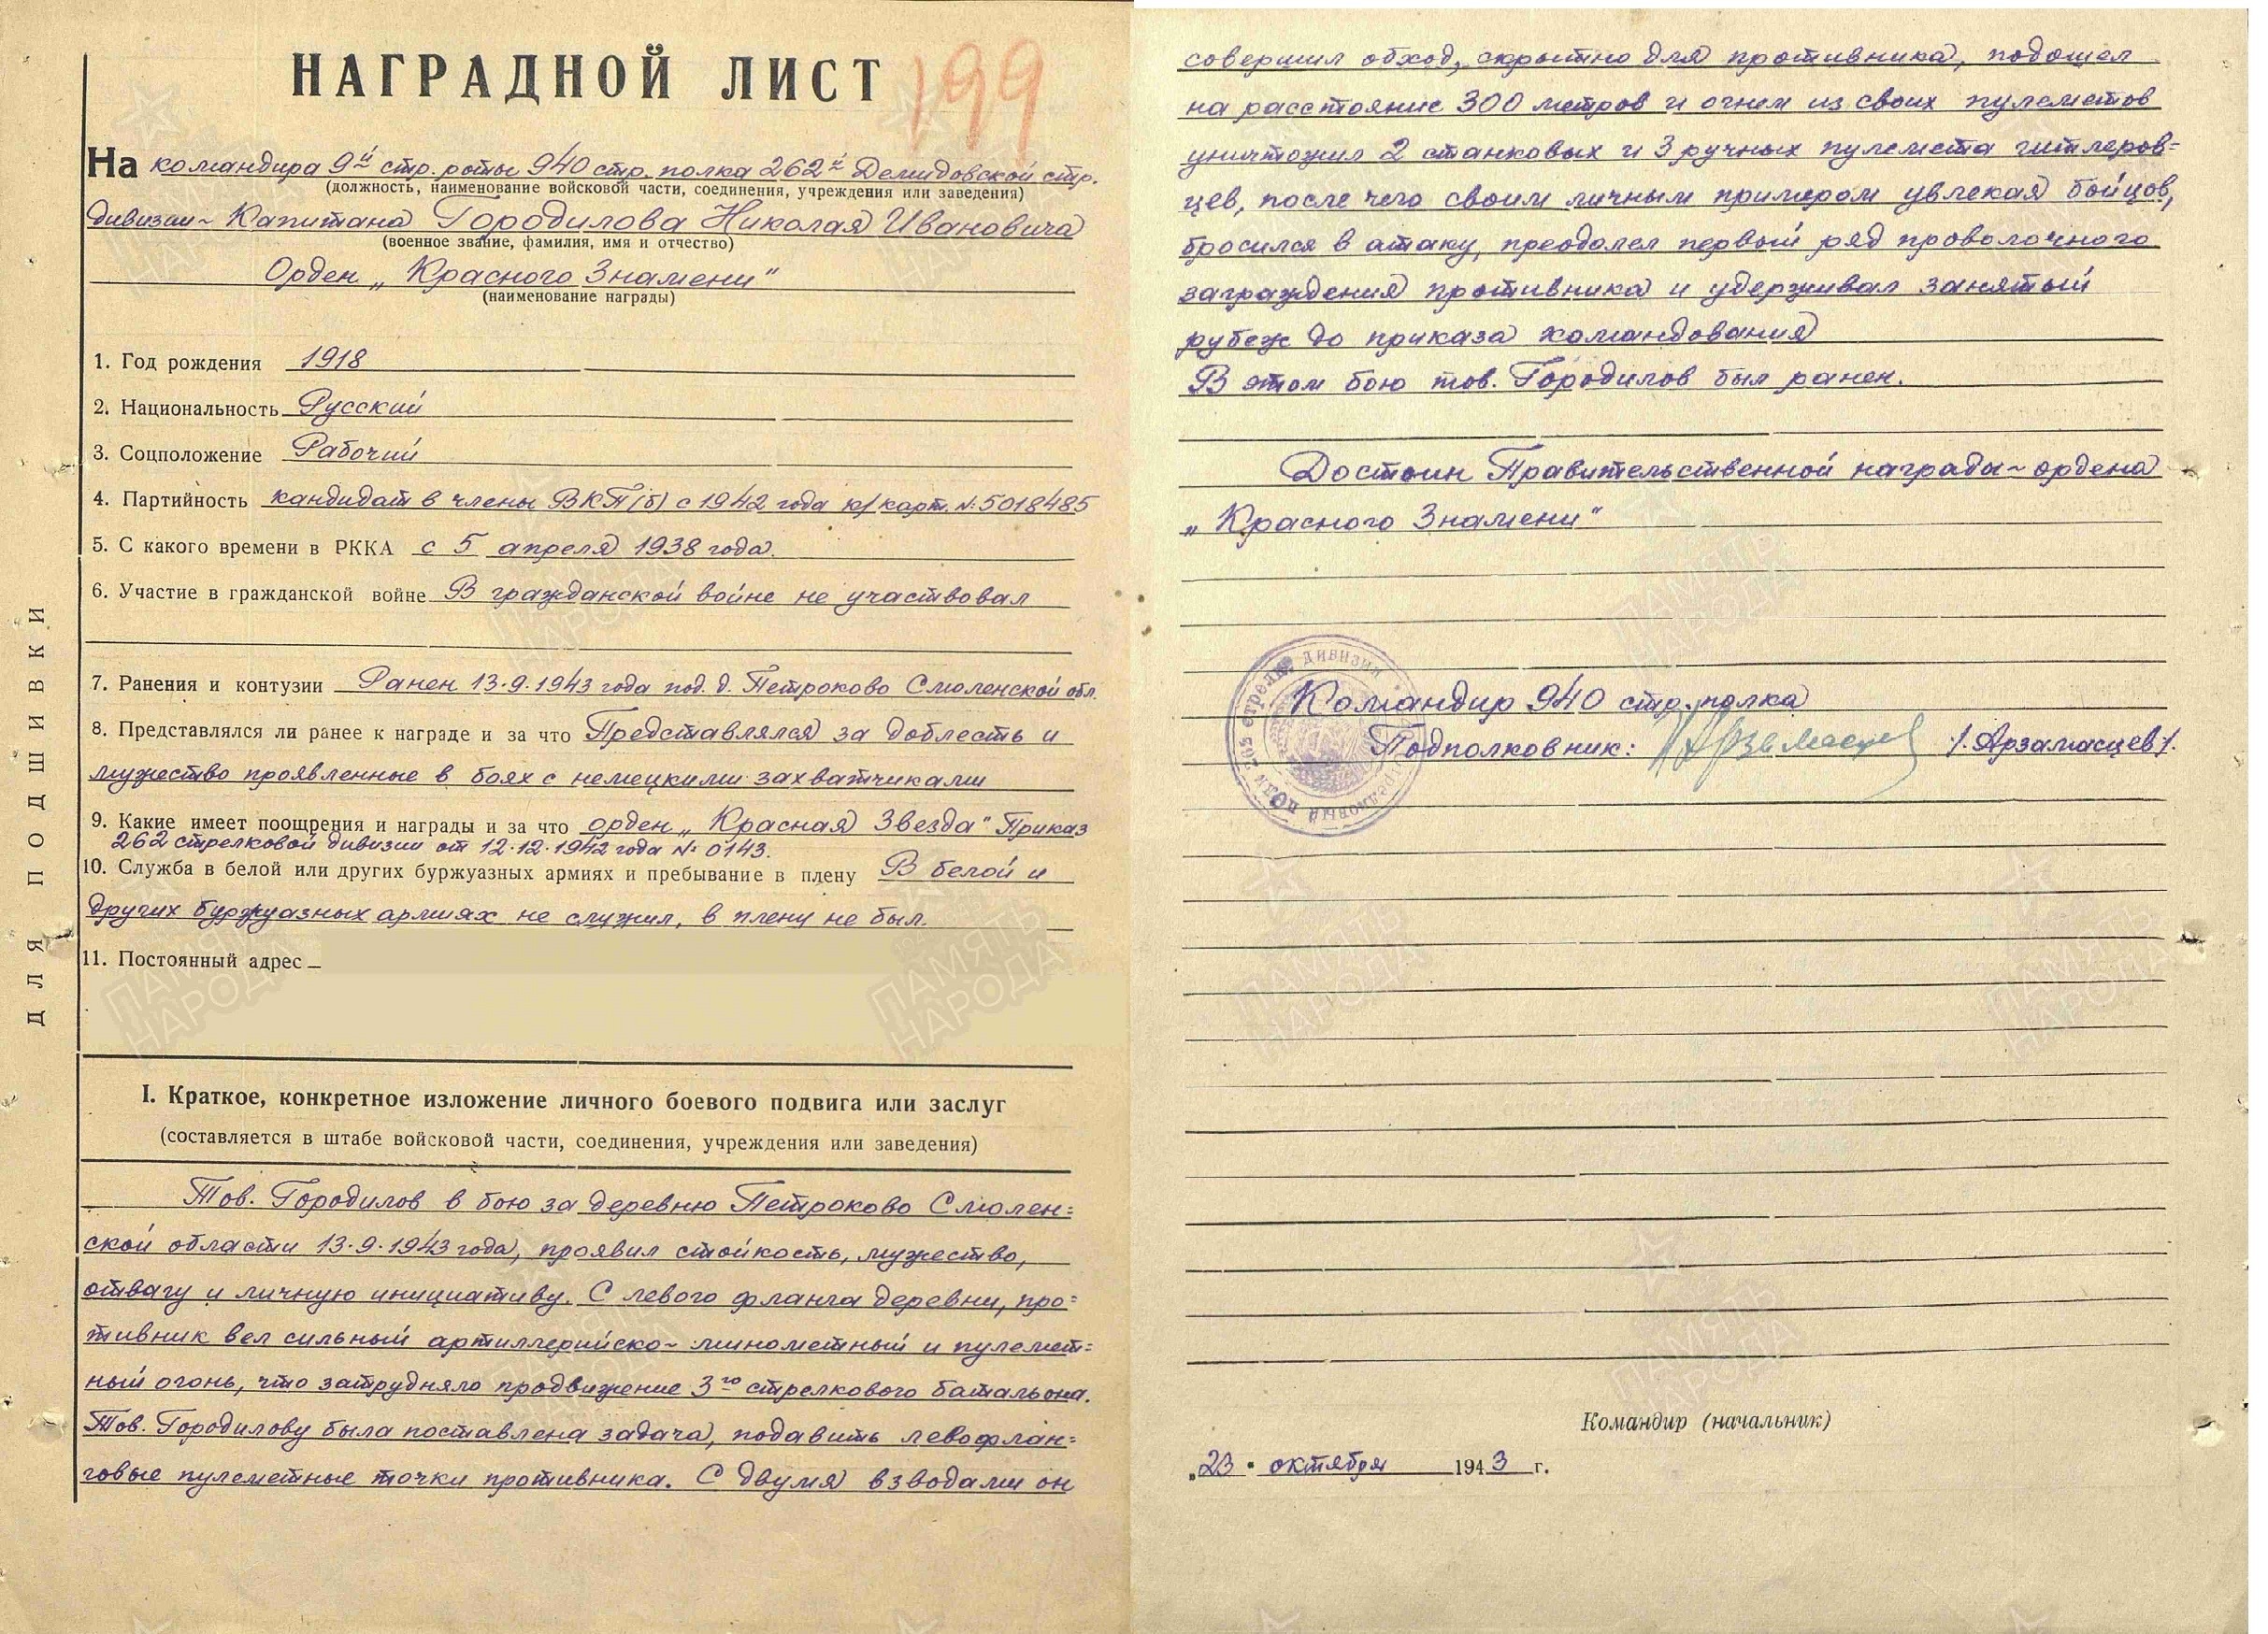 НАГРАДНОЙ ЛИСТ
199
На командира 9й стр. роты 940 стр. полка 262й Демидовской стр.
(должность, наименование войсковой части, соединения, учреждения или заведения)
дивизии - Капитана Городилова Николая Ивановича
(военное звание, фамилия, имя и отчество)
Орден „Красного Знамени"
(наименование награды)
1. Год рождения 1918
2. Национальность Русский
3. Соцположение Рабочий
4. Партийность кандидат в члены ВКП(б) с 1942 года к/карт. №5018485
5. С какого времени в РККА с 5 апреля 1938 года.
6. Участие в гражданской войне В гражданской войне не участвовал
7. Ранения и контузии Ранен 13.9.1943 года под. д. Петроково Смоленской обл.
8. Представлялся ли ранее к награде и за что Представлялся за доблесть и
мужество проявленные в боях с немецкими захватчиками
9. Какие имеет поощрения и награды и за что орден „Красная Звезда" Приказ
262 стрелковой дивизии от 12.12.1942 года № 0143.
10. Служба в белой или других буржуазных армиях и пребывание в плену В белой и
других буржуазных армиях не служил, в плену не был.
11. Постоянный адрес
ДЛЯ ПОДШИВКИ
I. Краткое, конкретное изложение личного боевого подвига или заслуг
(составляется в штабе войсковой части, соединения, учреждения или заведения)
Тов. Городилов в бою за деревню Петроково Смолен=
ской области 13.9.1943 года, проявил стойкость, мужество,
отвагу и личную инициативу. С левого фланга деревни, про=
тивник вел сильный артиллерийско-минометный и пулемет=
ный огонь, что затрудняло продвижение 3го стрелкового батальона.
Тов. Городилову была поставлена задача, подавить левофлан=
говые пулеметные точки противника. С двумя взводами он
совершил обход, скрытно для противника, подошел
на расстояние 300 метров и огнем из своих пулеметов
уничтожил 2 станковых и 3 ручных пулемета гитлеров=
цев, после чего своим личным примером увлекая бойцов,
бросился в атаку, преодолел первый ряд проволочного
заграждения противника и удерживал занятый
рубеж до приказа командования
В этом бою тов. Городилов был ранен.
Достоин Правительственной награды - ордена
„Красного Знамени"
Командир 940 стр. полка
Подполковник: /Арзамасцев/.
Командир (начальник)
„23" октября 1943 г.
ПАМЯТЬ НАРОДА